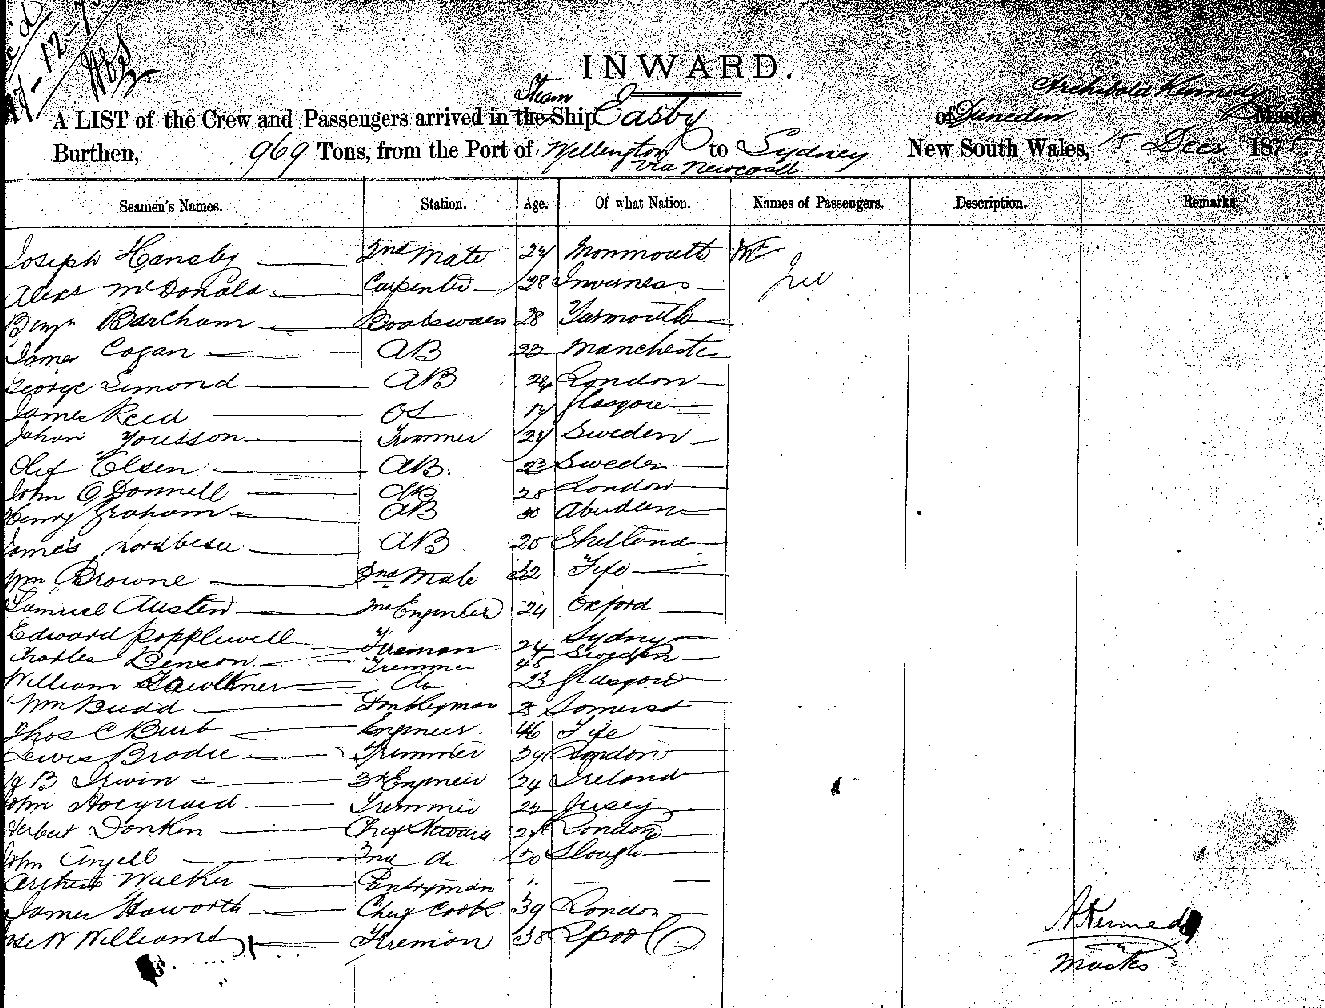 INWARD.
Archibald Kennedy
Steam
A LIST of the Crew and Passengers arrived in the Ship Easby of Dunedin Master
Burthen, 969 Tons, from the Port of Wellington to Sydney New South Wales, 15 Decr 187
via Newcastle
Seamen's Names. Station. Age. Of what Nation. Names of Passengers. Description. Remarks.
Joseph Hansby 2nd Mate 24 Monmouth
Alexr McDonald Carpenter 28 Inverness
Benjn Barcham Boatswain 28 Yarmouth
James Cogan AB 22 Manchester
George Simond AB 24 London
James Reed OS 17 Glasgow
Johan Trimmer 24 Sweden
Olif Elsen AB. 23 Sweden
John O'Donnell AB 28 London
Henry Graham AB 30 Aberdeen
James AB 20 Shetland
Wm Browne 2nd Mate 32 Fife
Samuel Austen 2nd Engineer 24 Oxford
Edward Popplewell Fireman 24 Sydney
Charles Benson Trimmer 45 Sweden
William Faulkner Do 23 Glasgow
Wm Budd Donkeyman Somerset
Thos C Burb Engineer 46 Fife
Lewis Brodie Trimmer 39 London
B Irwin 3rd Engineer 24 Ireland
John Hocquard Trimmer 22 Jersey
Herbert Donkin Chief Steward 24 London
John Angell 2nd do 20 Slough
Arthur Walker Pantryman
James Haworth Chief Cook 39 London
W Williams Fireman 38 Lpool
A Kennedy
Master